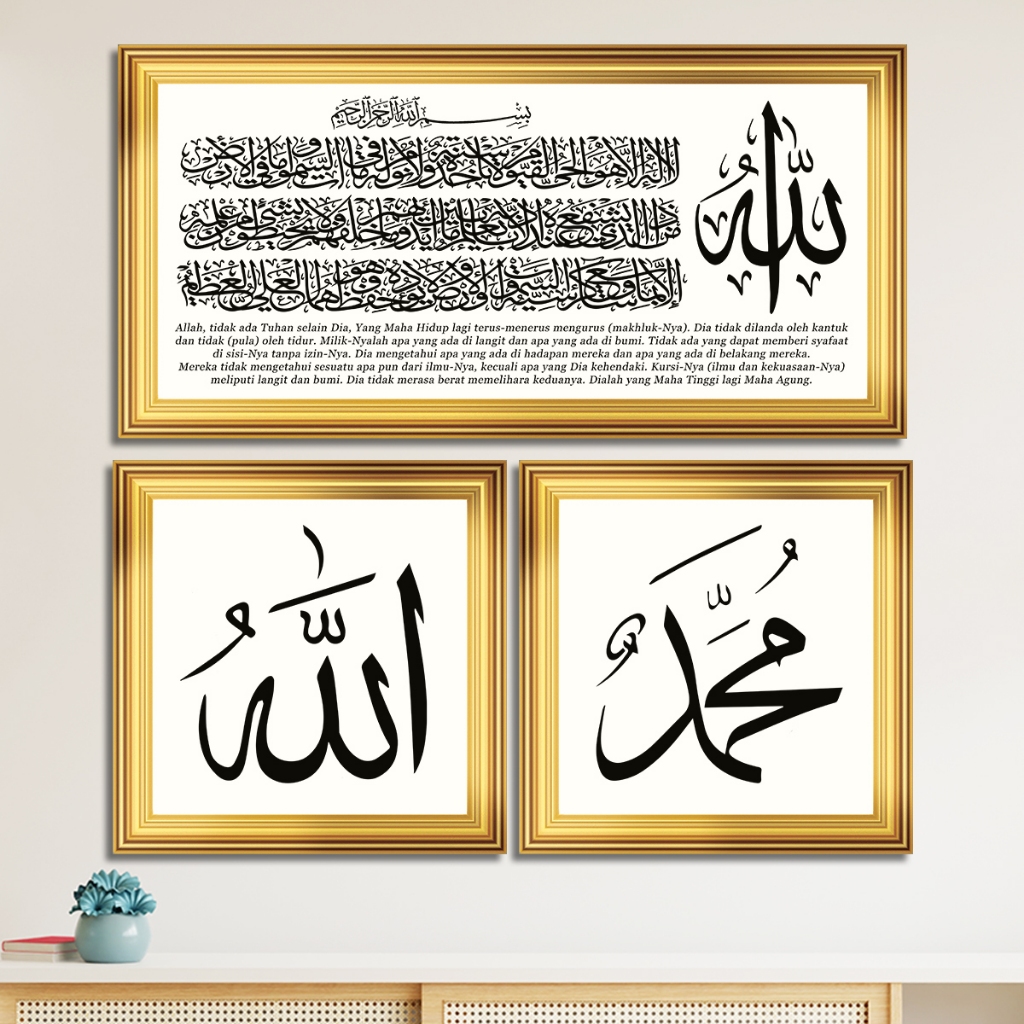 بسم الله الرحمن الرحيم
الله لا إله إلا هو الحي القيوم لا تأخذه سنة ولا نوم له ما في السموات وما في الأرض
من ذا الذي يشفع عنده إلا بإذنه يعلم ما بين أيديهم وما خلفهم ولا يحيطون بشيء من علمه
إلا بما شاء وسع كرسيه السموات والأرض ولا يؤده حفظهما وهو العلي العظيم
الله
Allah, tidak ada Tuhan selain Dia, Yang Maha Hidup lagi terus-menerus mengurus (makhluk-Nya). Dia tidak dilanda oleh kantuk
dan tidak (pula) oleh tidur. Milik-Nyalah apa yang ada di langit dan apa yang ada di bumi. Tidak ada yang dapat memberi syafaat
di sisi-Nya tanpa izin-Nya. Dia mengetahui apa yang ada di hadapan mereka dan apa yang ada di belakang mereka.
Mereka tidak mengetahui sesuatu apa pun dari ilmu-Nya, kecuali apa yang Dia kehendaki. Kursi-Nya (ilmu dan kekuasaan-Nya)
meliputi langit dan bumi. Dia tidak merasa berat memelihara keduanya. Dialah yang Maha Tinggi lagi Maha Agung.
الله
محمد